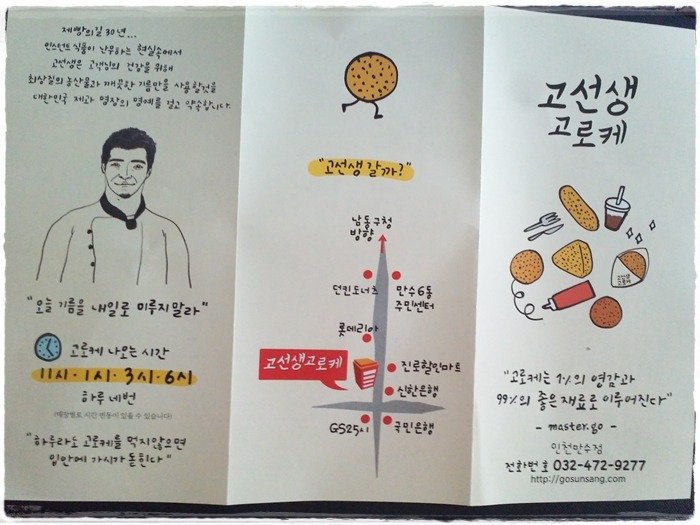 제빵외길 30년...
인스턴트 식품이 난무하는 현실속에서
고선생은 고객님의 건강을 위해
최상질의 농산물과 깨끗한 기름만을 사용할것을
대한민국 제과 명장의 명예를 걸고 약속합니다.
"오늘 기름을 내일로 미루지말라"
고로케 나오는 시간
11시·1시·3시·6시
하루 네번
(매장별로 시간 변동이 있을 수 있습니다)
"하루라도 고로케를 먹지않으면
입안에 가시가 돋힌다"
"고선생갈까?"
남동구청
방향
던킨도너츠
만수6동
주민센터
롯데리아
고선생고로케
진로할인마트
신한은행
GS25시
국민은행
고선생
고로케
고선생
고로케
"고로케는 1%의 영감과
99%의 좋은재료로 이루어진다"
- master.go -
인천만수점
전화번호 032-472-9277
http://gosunsang.com